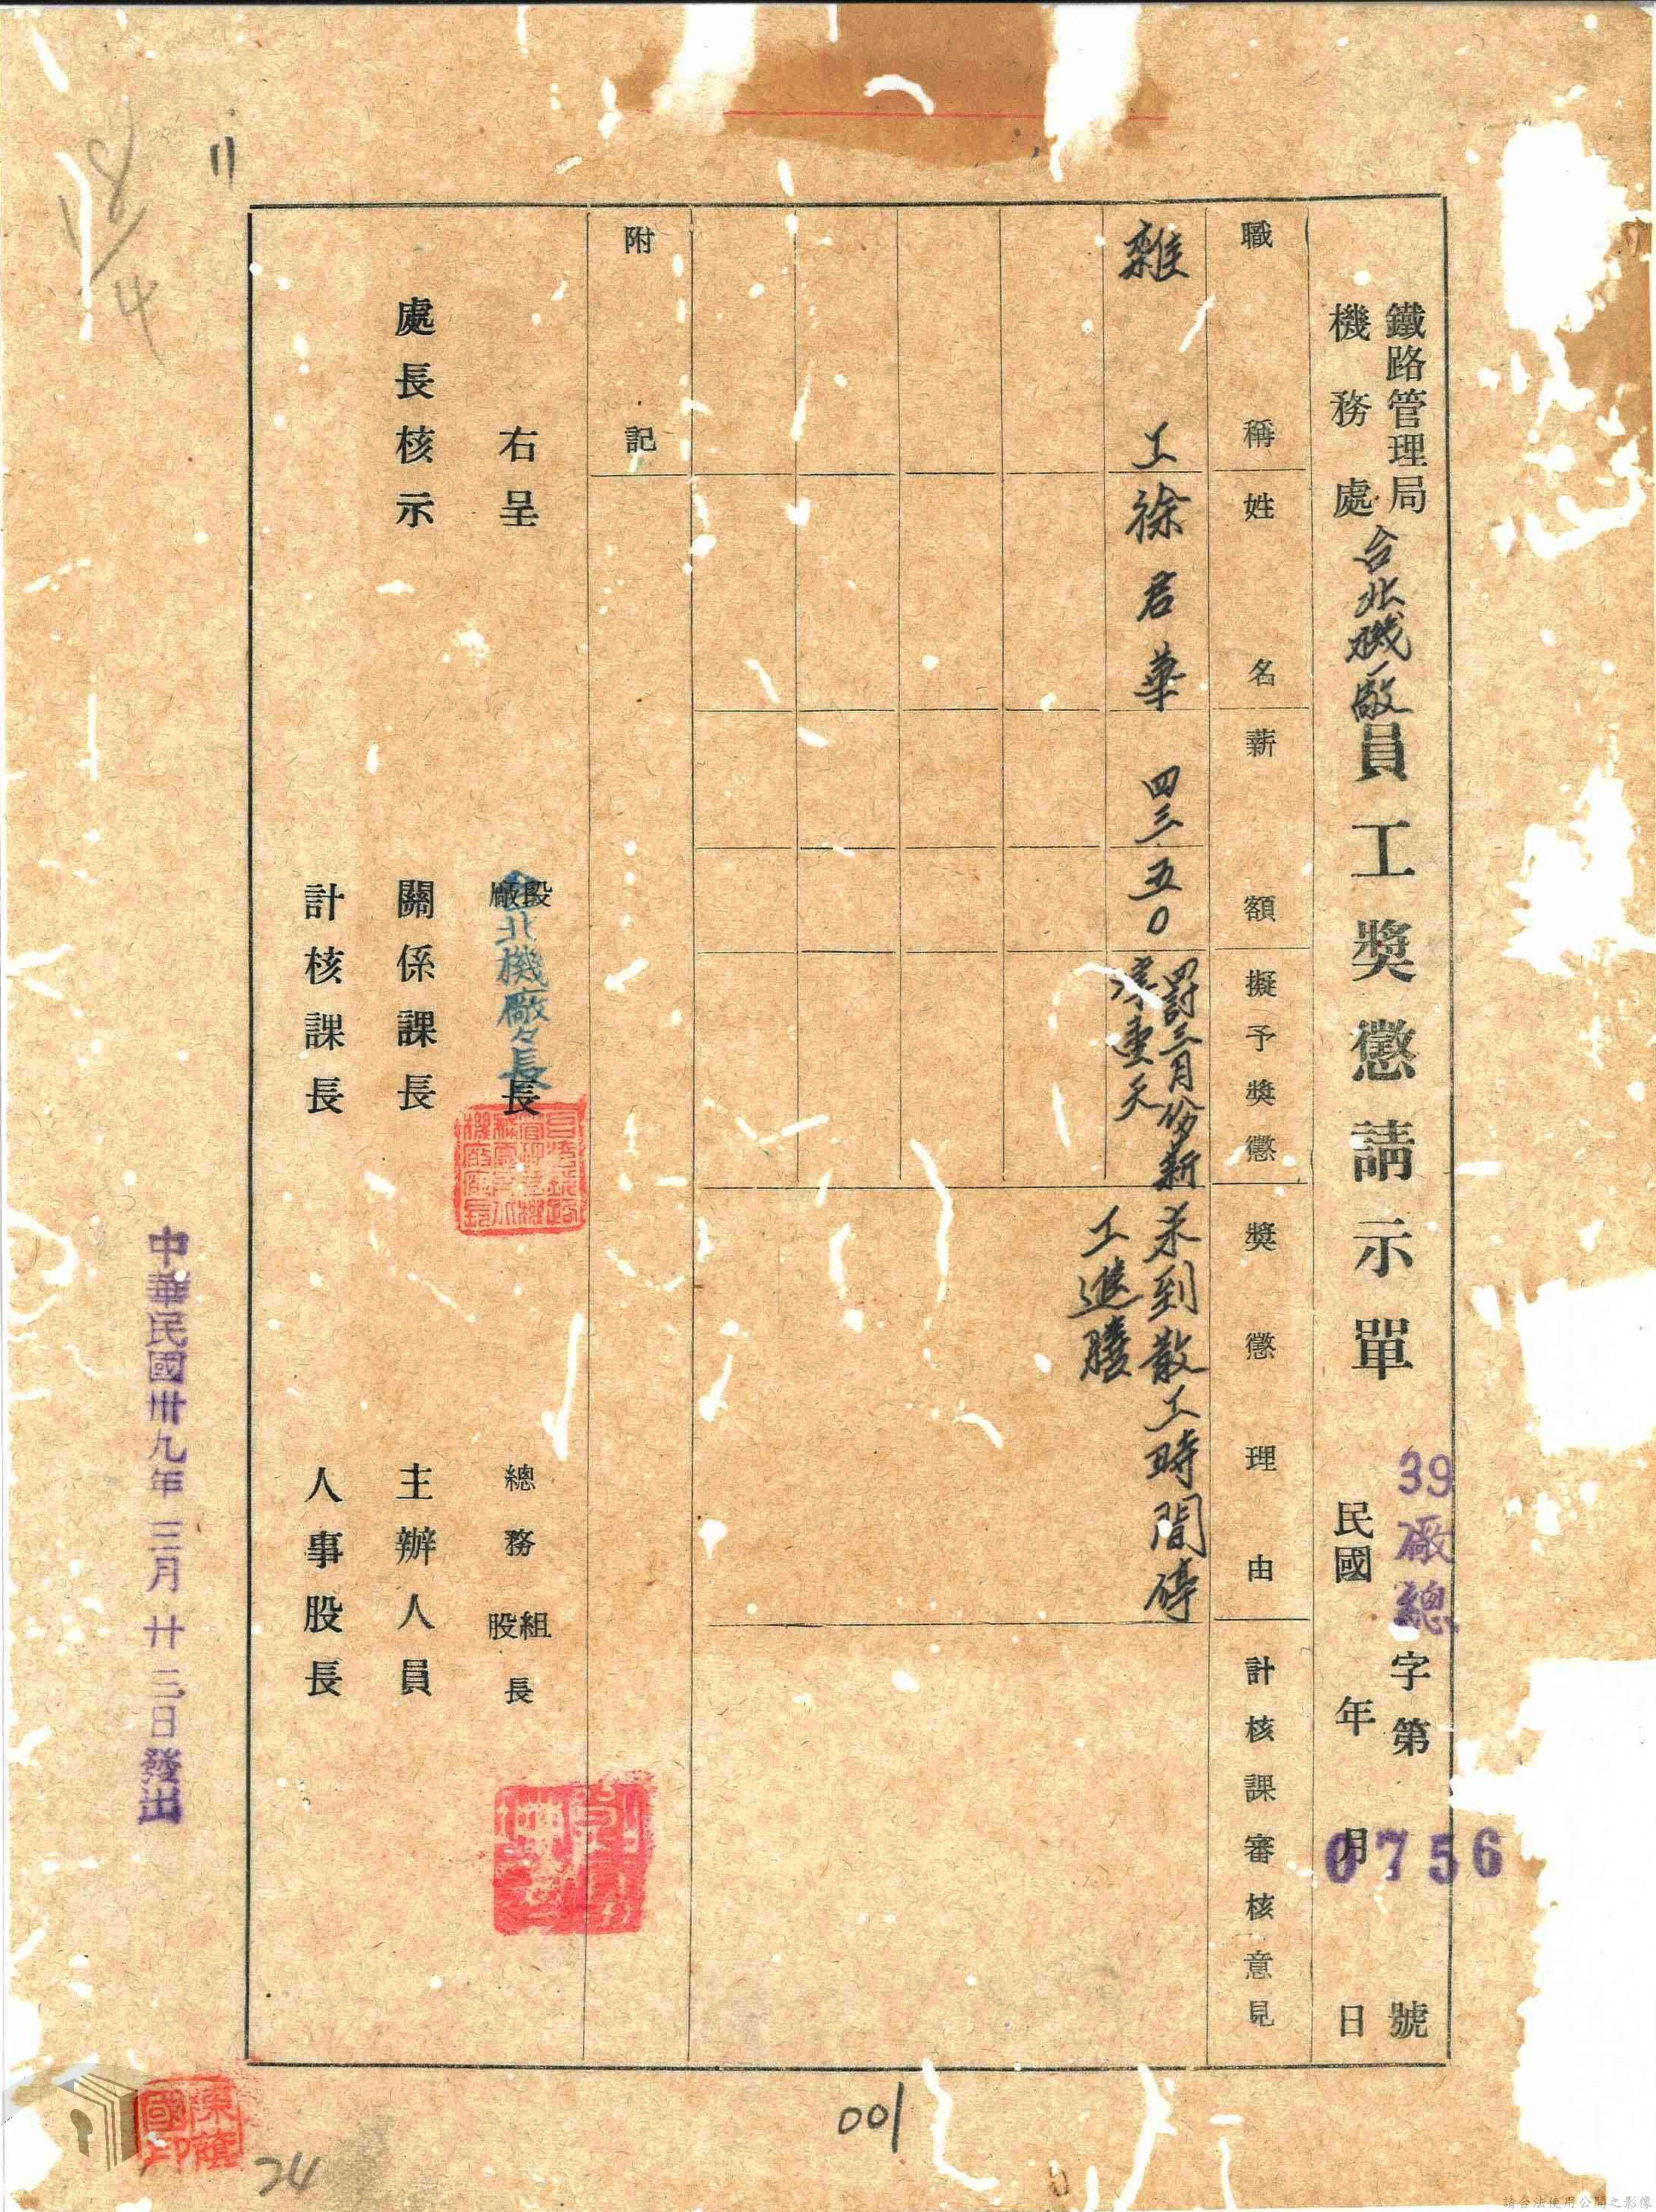 鐵路管理局
機務處
台北機廠員工獎懲請示單
39廠總字第0756號
民國 年 月 日
職稱
姓名
薪額
擬予獎懲
獎懲理由
計核課審核意見
雜工
徐君華
四三五〇
罰三月份薪
未到散工時間停
工進膳
附記
右呈
處長核示
段廠長
台北機廠々長
總務組股長
關係課長
主辦人員
計核課長
人事股長
中華民國卅九年三月廿三日發出
18/4
001
24
請合法使用公開之影像